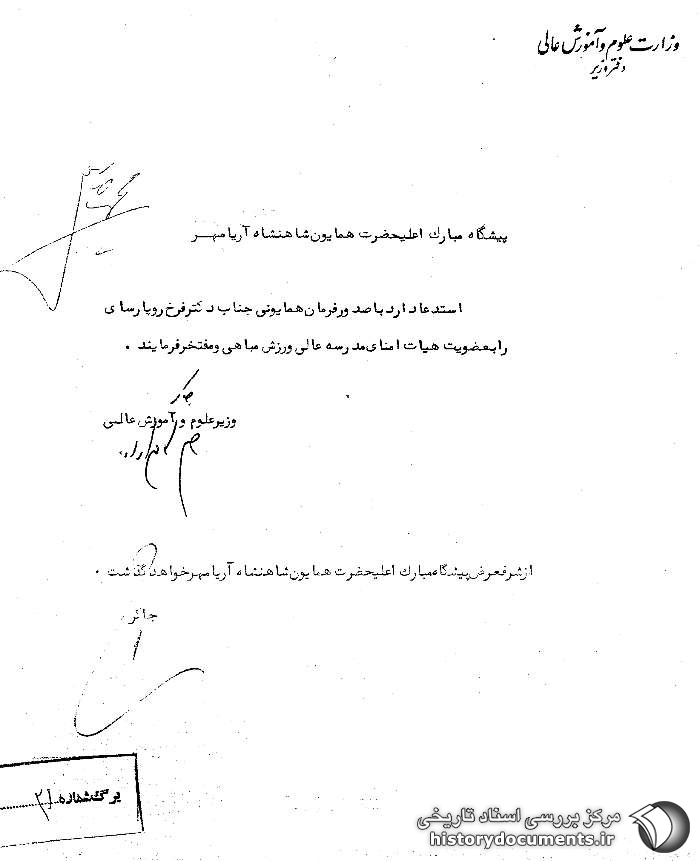 وزارت علوم و آموزش عالی
دفتر وزیر
پیشگاه مبارك اعلیحضرت همایون شاهنشاه آریامهر
استدعا دارد با صدور فرمان همایونی جناب دکتر فرخ رو پارسای
را بعضویت هیات امنای مدرسه عالی ورزش مباهی و مفتخر فرمایند .
وزیر علوم و آموزش عالی
از شرفعرض پیشگاه مبارك اعلیحضرت همایون شاهنشاه آریامهر خواهد گذشت .
برگ شماره
مرکز بررسی اسناد تاریخی
historydocuments.ir